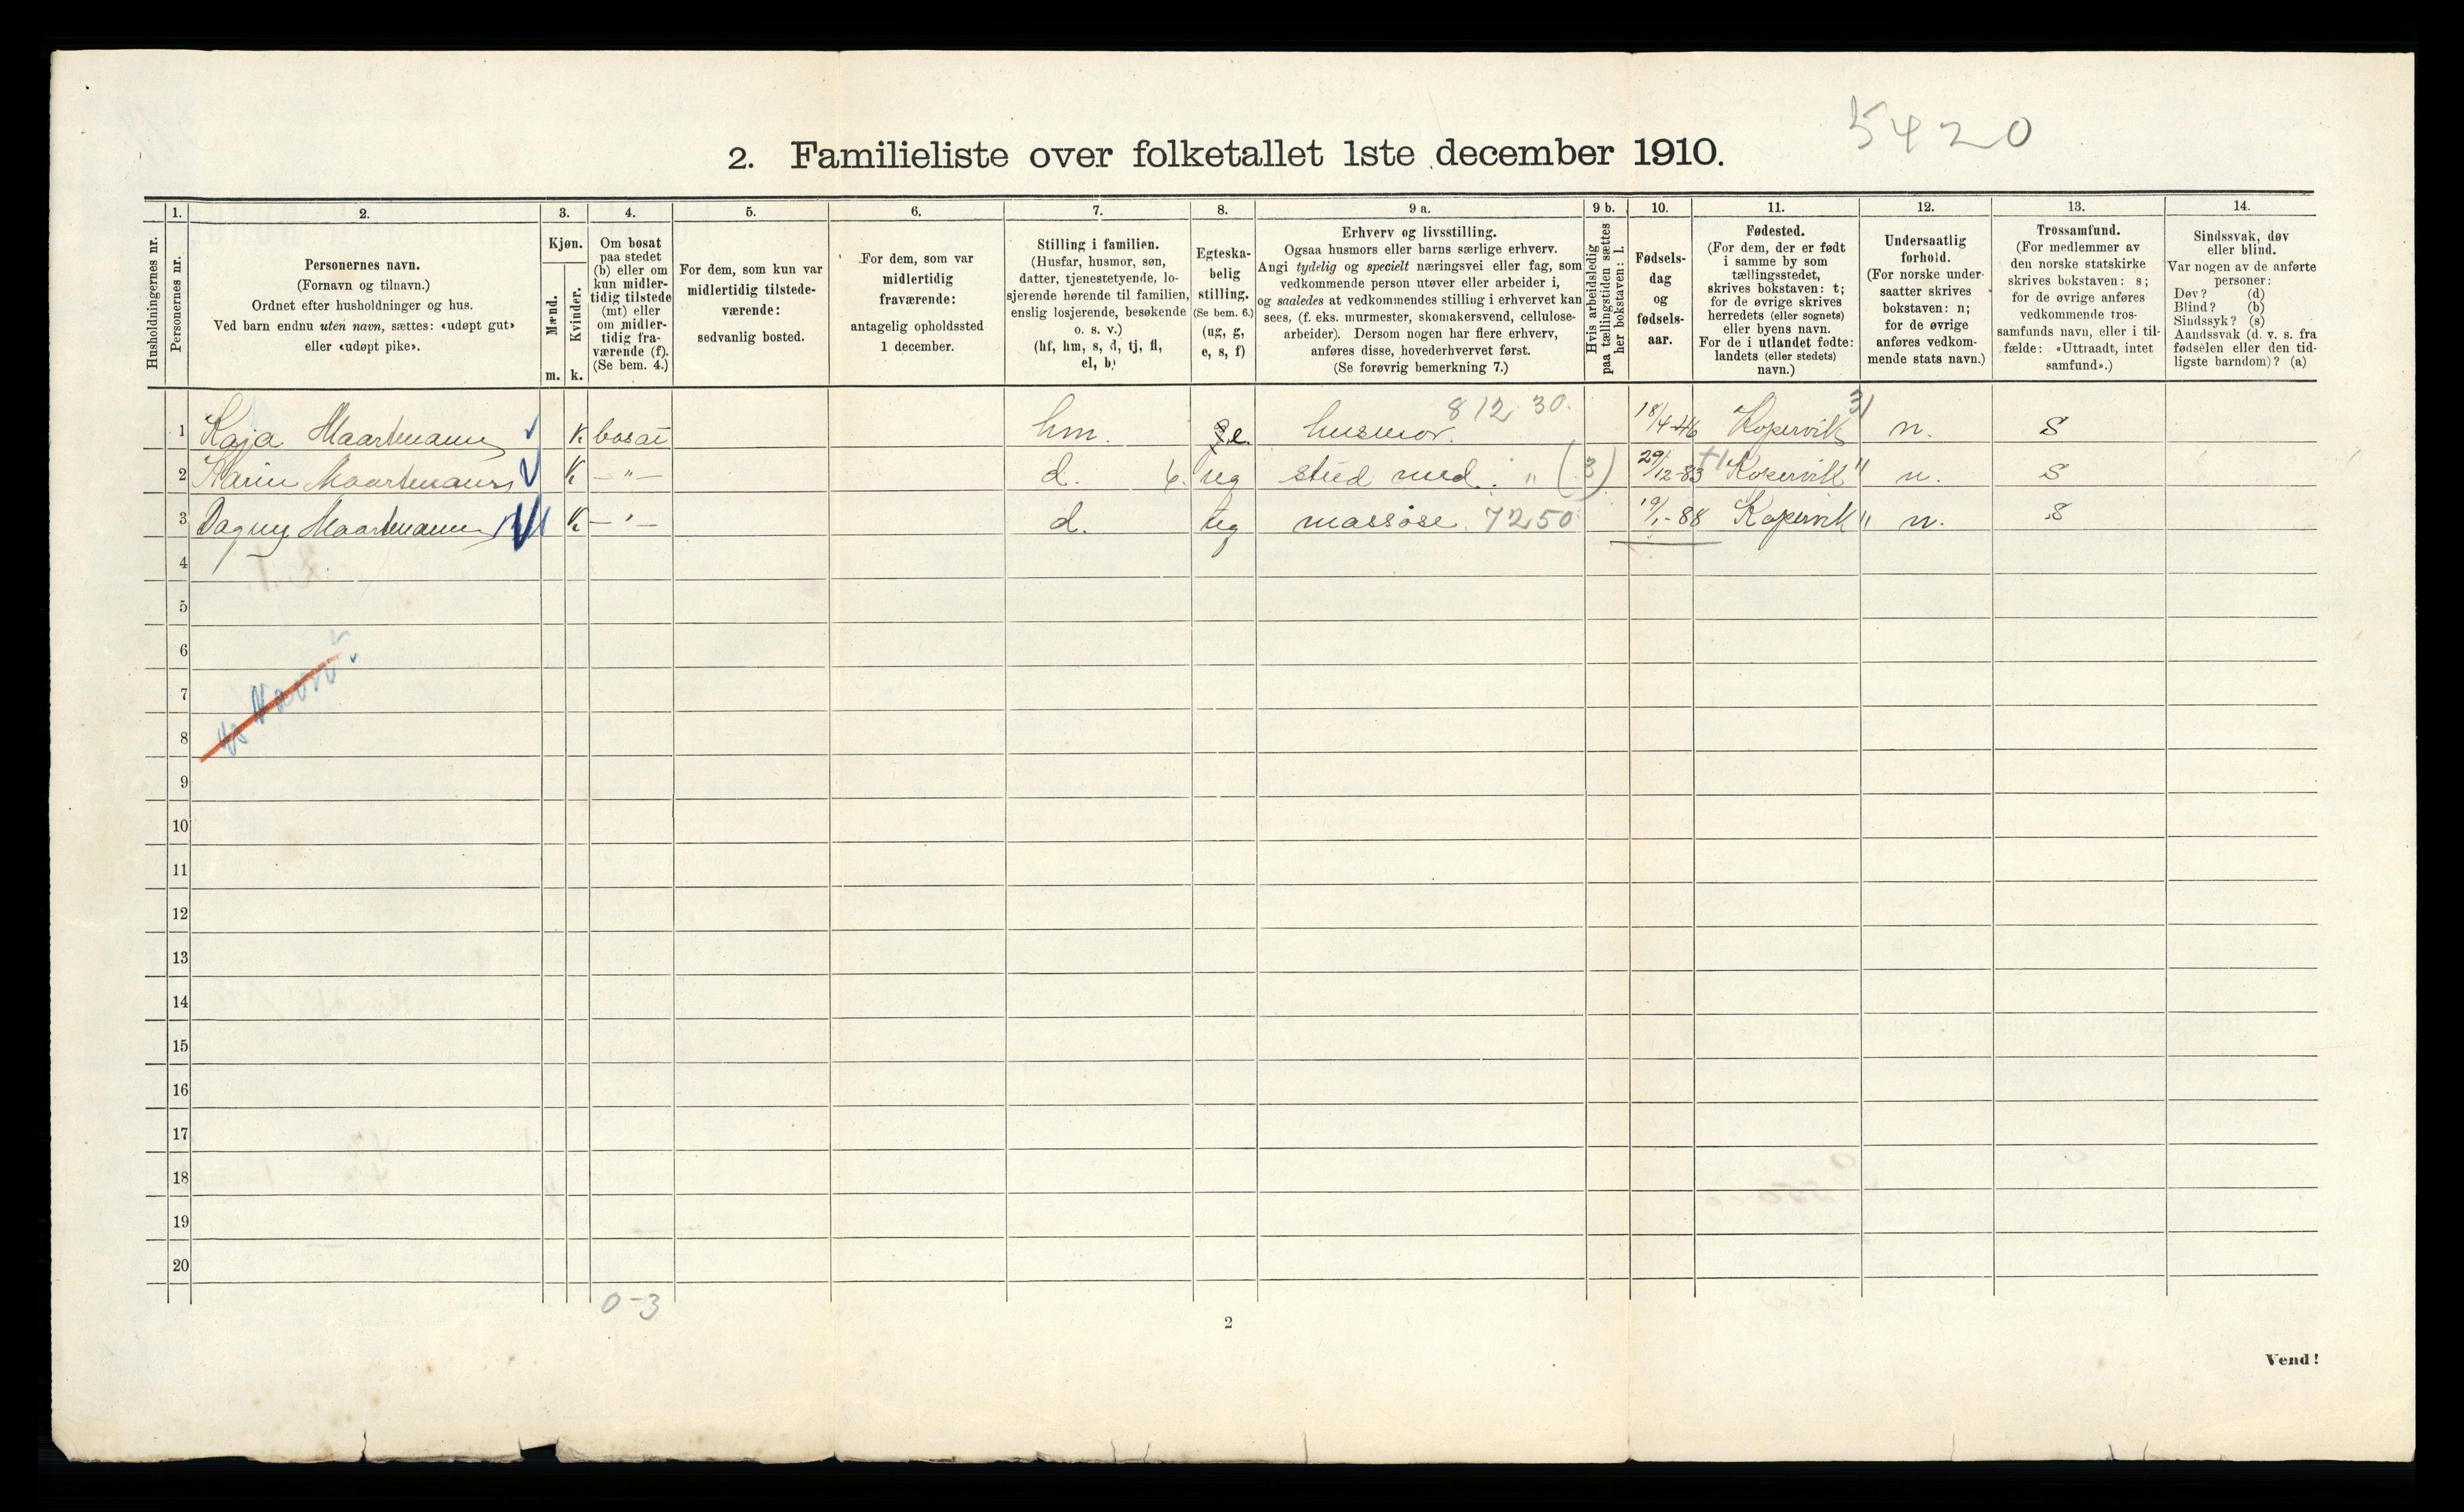 5420
2. Familieliste over folketallet 1ste december 1910.
Husholdningernes nr.
1. 2. 3. 4. 5. 6. 7. 8. 9 a. 9 b. 10. 11. 12. 13. 14.
Personernes nr.
Personernes navn.
(Fornavn og tilnavn.)
Ordnet efter husholdninger og hus.
Ved barn endnu uten navn, sættes: «udøpt gut»
eller «udøpt pike».
Kjøn.
Mænd.
m.
Kvinder.
k.
Om bosat
paa stedet
(b) eller om
kun midler-
tidig tilstede
(mt) eller
om midler-
tidig fra-
værende (f).
(Se bem. 4.)
For dem, som kun var
midlertidig tilstede-
værende:
sedvanlig bosted.
For dem, som var
midlertidig
fraværende:
antagelig opholdssted
1 december.
Stilling i familien.
(Husfar, husmor, søn,
datter, tjenestetyende, lo-
sjerende hørende til familien,
enslig losjerende, besøkende
o. s. v.)
(hf, hm, s, d, tj, fl,
el, b)
Egteska-
belig
stilling.
(Se bem. 6.)
(ug, g,
e, s, f)
Erhverv og livsstilling.
Ogsaa husmors eller barns særlige erhverv.
Angi tydelig og specielt næringsvei eller fag, som
vedkommende person utøver eller arbeider i,
og saaledes at vedkommendes stilling i erhvervet kan
sees, (f. eks. murmester, skomakersvend, cellulose-
arbeider). Dersom nogen har flere erhverv,
anføres disse, hovederhvervet først.
(Se forøvrig bemerkning 7.)
Hvis arbeidsledig
paa tællingstiden sættes
her bokstaven: l.
Fødsels-
dag
og
fødsels-
aar.
Fødested.
(For dem, der er født
i samme by som
tællingsstedet,
skrives bokstaven: t;
for de øvrige skrives
herredets (eller sognets)
eller byens navn.
For de i utlandet fødte:
landets (eller stedets)
navn.)
Undersaatlig
forhold.
(For norske under-
saatter skrives
bokstaven: n;
for de øvrige
anføres vedkom-
mende stats navn.)
Trossamfund.
(For medlemmer av
den norske statskirke
skrives bokstaven: s;
for de øvrige anføres
vedkommende tros-
samfunds navn, eller i til-
fælde: «Uttraadt, intet
samfund».)
Sindssvak, døv
eller blind.
Var nogen av de anførte
personer:
Døv? (d)
Blind? (b)
Sindssyk? (s)
Aandssvak (d. v. s. fra
fødselen eller den tid-
ligste barndom)? (a)
1 Kaja Maartmann K bosat hm. e. husmor. 812 30. 18/4-46 Kopervik 31 n. S
2 Karin Maartmann K — " — d. 6. ug stud med. " (3) 29/12-83 Kopervik " n. S
3 Dagny Maartmann K — " — d. ug massøse. 7250 19/1-88 Kopervik " n. S
4
5
6
7
8
9
10
11
12
13
14
15
16
17
18
19
20
0-3
2
Vend!